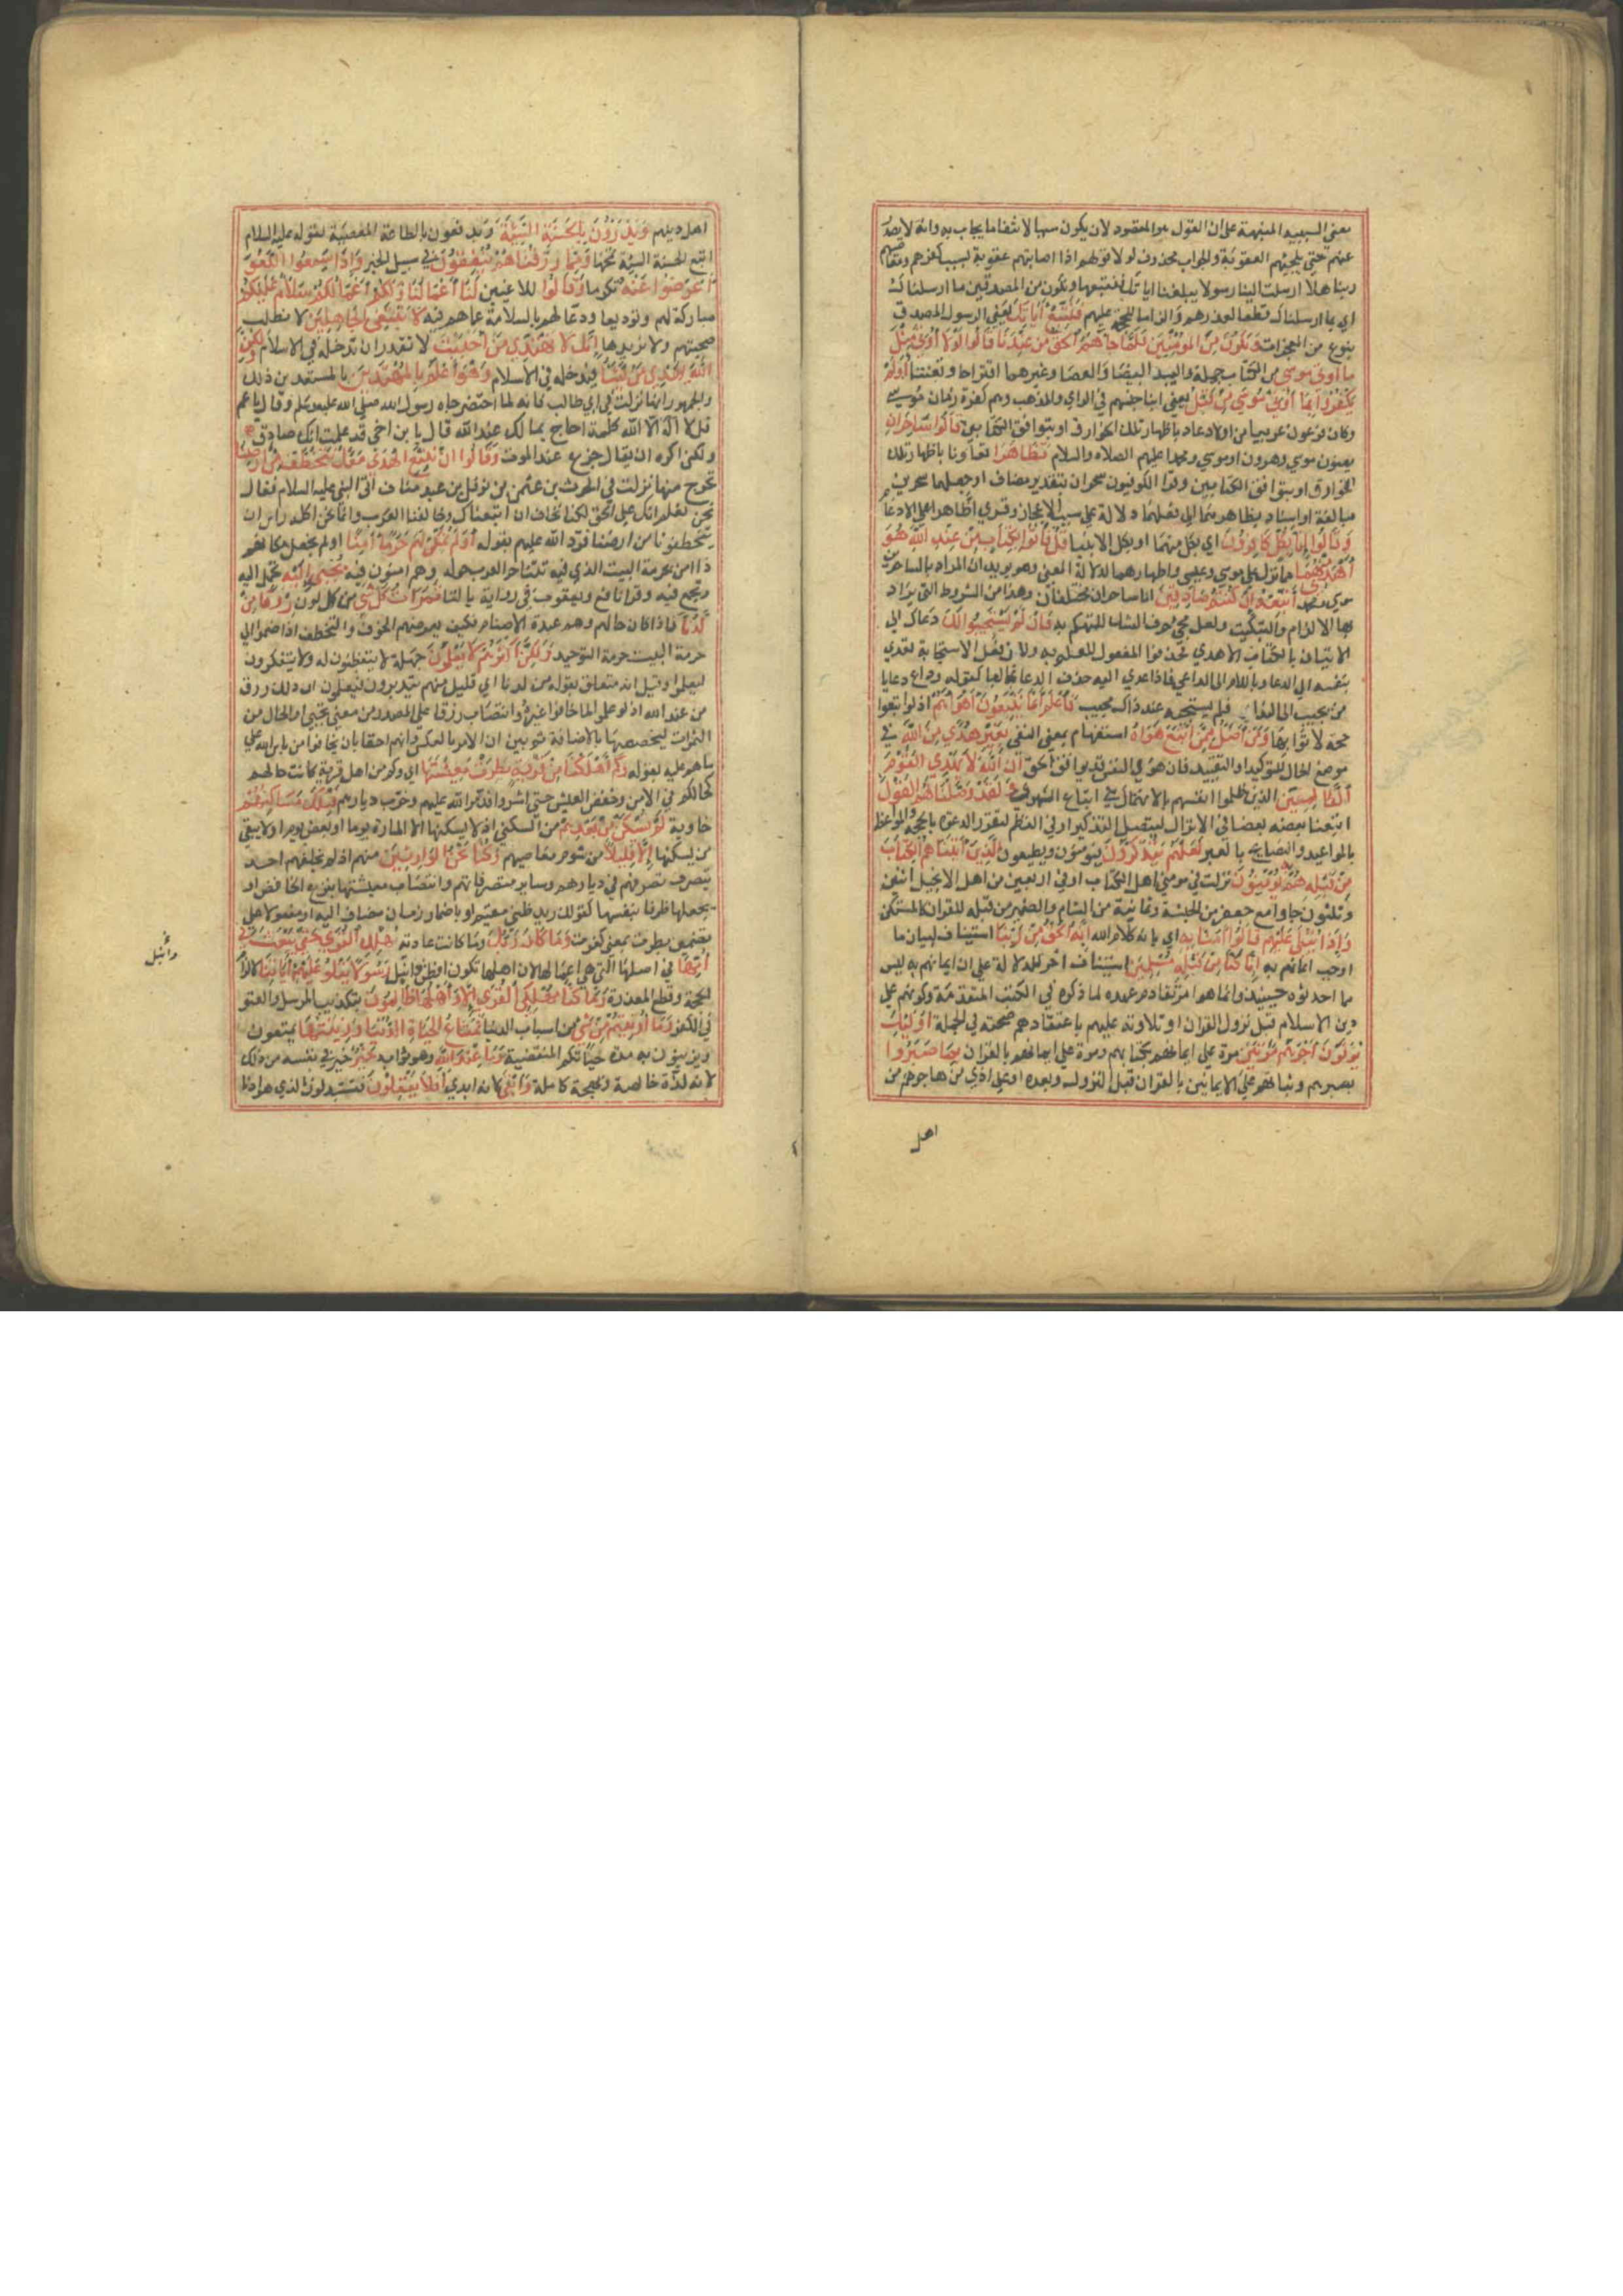 معنى السببية المنبهة على ان القول هو المقصود لان يكون سببا لانتفاء ما يجاب به وانه لا يصدر
عنهم حتى يلجيهم العقوبة والجواب محذوف لولا قولهم اذا اصابتهم عقوبة بسبب كفرهم ومعاصيهم
ربنا هلا ارسلت الينا رسولا يبلغنا اياتك فنتبعها ونكون من المصدقين ما ارسلناك
اي بما ارسلناك قطعا لعذرهم والزاما للحجة عليهم فَنَتَّبِعَ آيَاتِكَ يعني الرسول المصدق
بنوع من المعجزات وَنَكُونَ مِنَ المُؤْمِنِينَ فَلَمَّا جَاءَهُمُ الحَقُّ مِنْ عِنْدِنَا قَالُوا لَوْلَا أُوتِيَ مِثْلَ
مَا أُوتِيَ مُوسَى من الكتاب جملة واليد البيضا والعصا وغيرهما اقتراحا وتعنتا أَوَلَمْ
يَكْفُرُوا بِمَا أُوتِيَ مُوسَى مِنْ قَبْلُ يعني ابنا جنسهم في الراي والمذهب وهم كفرة زمان موسى
وكان فرعون عربيا من اولاد عاد باظهار تلك الخوارق او بتوافق الكتابين قَالُوا سَاحِرَانِ
يعنون موسى وهرون او موسى ومحمدا عليهم الصلاه والسلام تَظَاهَرَا تعاونا باظهار تلك
الخوارق او بتوافق الكتابين وقرا الكوفيون سحران بتقدير مضاف او جعلهما سحرين
مبالغة او اسناد تظاهرهما الى فعلهما دلالة على سبب الاعجاز وقرى اظاهرا على الادغام
وَقَالُوا إِنَّا بِكُلٍّ كَافِرُونَ اي بكل منهما او بكل الانبيا قُلْ فَأْتُوا بِكِتَابٍ مِنْ عِنْدِ اللَّهِ هُوَ
أَهْدَى مِنْهُمَا مما نزل على موسى وعلي واضمارهما لدلالة المعنى وهو يويد ان المراد بالساحرين
موسى ومحمد أَتَّبِعْهُ إِنْ كُنْتُمْ صَادِقِينَ انا ساحران مختلفان وهذا من الشروط التي يراد
بها الالزام والتبكيت ولعل مجي حرف الشك للتهكم بهم فَإِنْ لَمْ يَسْتَجِيبُوا لَكَ دعاك الى
الاتيان بالكتاب الاهدى فحذف المفعول للعلم به ولان فعل الاستجابة تعدى
بنفسه الى الدعا وباللام الى الداعي فاذا عدي اليه حذف الدعا غالبا كقوله وداع دعا يا
من يجيب الى الندا فلم يستجبه عند ذاك مجيب فَاعْلَمْ أَنَّمَا يَتَّبِعُونَ أَهْوَاءَهُمْ اذ لو اتبعوا
حجة لاتوا بها وَمَنْ أَضَلُّ مِمَّنِ اتَّبَعَ هَوَاهُ استفهام بمعنى النفي بِغَيْرِ هُدًى مِنَ اللَّهِ في
موضع الحال للتوكيد او التقييد فان هوى النفس قد يوافق الحق إِنَّ اللَّهَ لَا يَهْدِي القَوْمَ
الظَّالِمِينَ الذين ظلموا انفسهم بالانهماك في اتباع الشهوى وَلَقَدْ وَصَّلْنَا لَهُمُ القَوْلَ
اتبعنا بعضه بعضا في الانزال ليتصل التذكير او في النظم ليتقرر الدعوة بالحجة والمواعظ
بالمواعيد والنصايح بالعبر لَعَلَّهُمْ يَتَذَكَّرُونَ فيومنون ويطيعون الَّذِينَ آتَيْنَاهُمُ الكِتَابَ
مِنْ قَبْلِهِ هُمْ بِهِ يُؤْمِنُونَ نزلت في مومني اهل الكتاب او في اربعين من اهل الانجيل اثنين
وثلثون جاوا مع جعفر من الحبشة وثمانية من الشام والضمير من قبله للقران كالمستكن
وَإِذَا يُتْلَى عَلَيْهِمْ قَالُوا آمَنَّا بِهِ اي بانه كلام الله إِنَّهُ الحَقُّ مِنْ رَبِّنَا استيناف لبيان ما
اوجب ايمانهم به إِنَّا كُنَّا مِنْ قَبْلِهِ مُسْلِمِينَ استيناف اخر للدلالة على ان ايمانهم به ليس
مما احدثوه حينيذ وانما هو امر تقادم عهده لما ذكره في الكتب المتقدمة وكونهم على
دين الاسلام قبل نزول القران او تلاوته عليهم باعتقادهم صحته في الجملة أُولَئِكَ
يُؤْتَوْنَ أَجْرَهُمْ مَرَّتَيْنِ مرة على ايمانهم بكتابهم ومرة على ايمانهم بالقران بِمَا صَبَرُوا
بصبرهم وثباتهم على الايمانين بالقران قبل النزول وبعده او على اذى من هاجرهم من
اهل
اهل دينهم وَيَدْرَؤُونَ بِالحَسَنَةِ السَّيِّئَةَ ويدفعون بالطاعة المعصية لقوله عليه السلام
اتبع الحسنة السيئة تمحها وَمِمَّا رَزَقْنَاهُمْ يُنْفِقُونَ في سبيل الخير وَإِذَا سَمِعُوا اللَّغْوَ
أَعْرَضُوا عَنْهُ تكرما وَقَالُوا للاغين لَنَا أَعْمَالُنَا وَلَكُمْ أَعْمَالُكُمْ سَلَامٌ عَلَيْكُمْ
متاركة لهم وتوديعا ودعا لهم بالسلامة عما هم فيه لَا نَبْتَغِي الجَاهِلِينَ لا نطلب
صحبتهم ولا نريدها إِنَّكَ لَا تَهْدِي مَنْ أَحْبَبْتَ لا تقدر ان تدخله في الاسلام وَلَكِنَّ
اللَّهَ يَهْدِي مَنْ يَشَاءُ فيدخله في الاسلام وَهُوَ أَعْلَمُ بِالمُهْتَدِينَ بالمستعدين ذلك
والجمهور انها نزلت في ابي طالب فانه لما احتضر جاه رسول الله صلى الله عليه وسلم وقال يا عم
قل لا اله الا الله كلمة احاج بها لك عند الله قال يا بن اخي قد علمت انك صادق
ولكن اكره ان يقال جزع عند الموت وَقَالُوا إِنْ نَتَّبِعِ الهُدَى مَعَكَ نُتَخَطَّفْ مِنْ أَرْضِنَا
نخرج منها نزلت في الحرث بن عثمن بن نوفل بن عبد مناف اتى النبي عليه السلام فقال
نحن نعلم انك على الحق لكنا نخاف ان اتبعناك وخالفنا العرب وانما نحن اكلة راس ان
يتخطفونا من ارضنا فرد الله عليهم بقوله أَوَلَمْ نُمَكِّنْ لَهُمْ حَرَمًا آمِنًا اولم نجعل مكانهم
ذا امن بحرمة البيت الذي فيه تتناحر العرب حوله وهم امنون فيه يُجْبَى إِلَيْهِ يحمل اليه
ويجمع فيه وقرا نافع ويعقوب في رواية بالتا ثَمَرَاتُ كُلِّ شَيْءٍ من كل لون رِزْقًا مِنْ
لَدُنَّا فاذا كان حالهم وهم عبدة الاصنام فكيف يعرضهم الخوف والتخطف اذا ضموا الى
حرمة البيت حرمة التوحيد وَلَكِنَّ أَكْثَرَهُمْ لَا يَعْلَمُونَ جهلة لا يتفطنون له ولا يتفكرون
ليعلموا وقيل انه متعلق بقوله من لدنا اي قليل منهم يتدبرون فيعلمون ان ذلك رزق
من عند الله اذ لو علموا لما خافوا غيره وانتصاب رزقا على المصدر من معنى يجبى او الحال من
الثمرات لتخصصها بالاضافة ثم بين ان الامر بالعكس وانهم احقا بان يخافوا من باس الله على
ما هم عليه بقوله وَكَمْ أَهْلَكْنَا مِنْ قَرْيَةٍ بَطِرَتْ مَعِيشَتَهَا اي وكم من اهل قرية كانت حالهم
كحالكم في الامن وخفض العيش حتى اشروا فدمر الله عليهم وخرب ديارهم فَتِلْكَ مَسَاكِنُهُمْ
خاوية لَمْ تُسْكَنْ مِنْ بَعْدِهِمْ من السكنى اذ لا يسكنها الا المارة يوما او بعض يوم او لا يبقى
من يسكنها إِلَّا قَلِيلًا من شوم معاصيهم وَكُنَّا نَحْنُ الوَارِثِينَ منهم اذ لم يخلفهم احد
يتصرف تصرفهم في ديارهم وساير متصرفاتهم وانتصاب معيشتها بنزع الخافض او
بجعلها ظرفا بنفسها كقولك زيد ظني مقيم او باضمار زمان مضاف اليه او مفعولا على
تضمين بطرت بمعنى كفرت وَمَا كَانَ رَبُّكَ وما كانت عادته مُهْلِكَ القُرَى حَتَّى يَبْعَثَ فِي
أُمِّهَا في اصلها التي هي اعمالها لان اهلها تكون افطن وانبل رَسُولًا يَتْلُو عَلَيْهِمْ آيَاتِنَا لالزام
الحجة وقطع المعذرة وَمَا كُنَّا مُهْلِكِي القُرَى إِلَّا وَأَهْلُهَا ظَالِمُونَ بتكذيب الرسل والعتو
في الكفر وَمَا أُوتِيتُمْ مِنْ شَيْءٍ من اسباب الدنيا فَمَتَاعُ الحَيَاةِ الدُّنْيَا وَزِينَتُهَا يمتعون
ويزينون به مدة حياتكم المنقضية وَمَا عِنْدَ اللَّهِ وهو ثوابه خَيْرٌ خير في نفسه من ذلك
لانه لذة خالصة وبهجة كاملة وَأَبْقَى لانه ابدي أَفَلَا يَعْقِلُونَ فتستبدلون الذي هو ادنى
وانبل